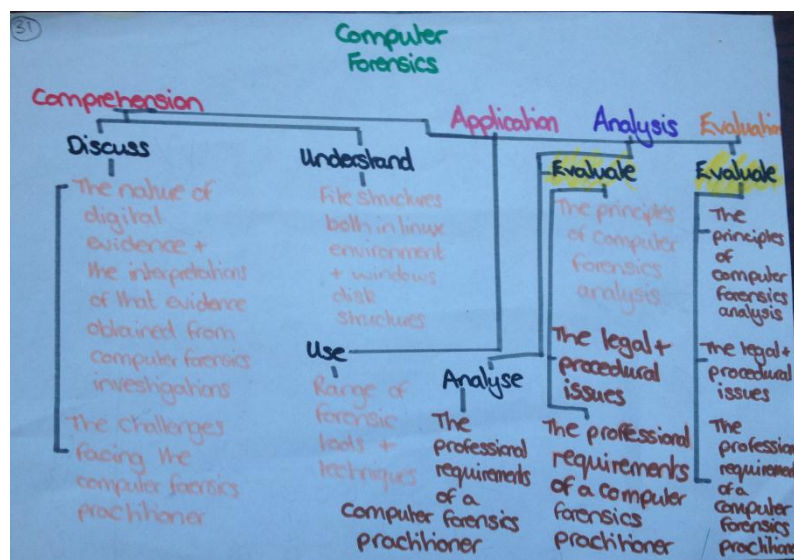 31
Computer
Forensics
Comprehension
Application
Analysis
Evaluation
Discuss
The nature of
digital
evidence +
the interpretations
of that evidence
obtained from
computer forensics
investigations
The challenges
facing the
computer forensics
practitioner
Understand
File structures
both in linux
environment
+ windows
disk
structures
Use
Range of
forensic
tools +
techniques
Analyse
The
professional
requirements
of a
computer forensics
practitioner
Evaluate
The principles
of computer
forensics
analysis
The legal +
procedural
issues
The proffessional
requirements
of a computer
forensics
practitioner
Evaluate
The
principles
of
computer
forensics
analysis
The legal +
procedural
issues
The
profession
requirement
of a
computer
forensics
practitioner